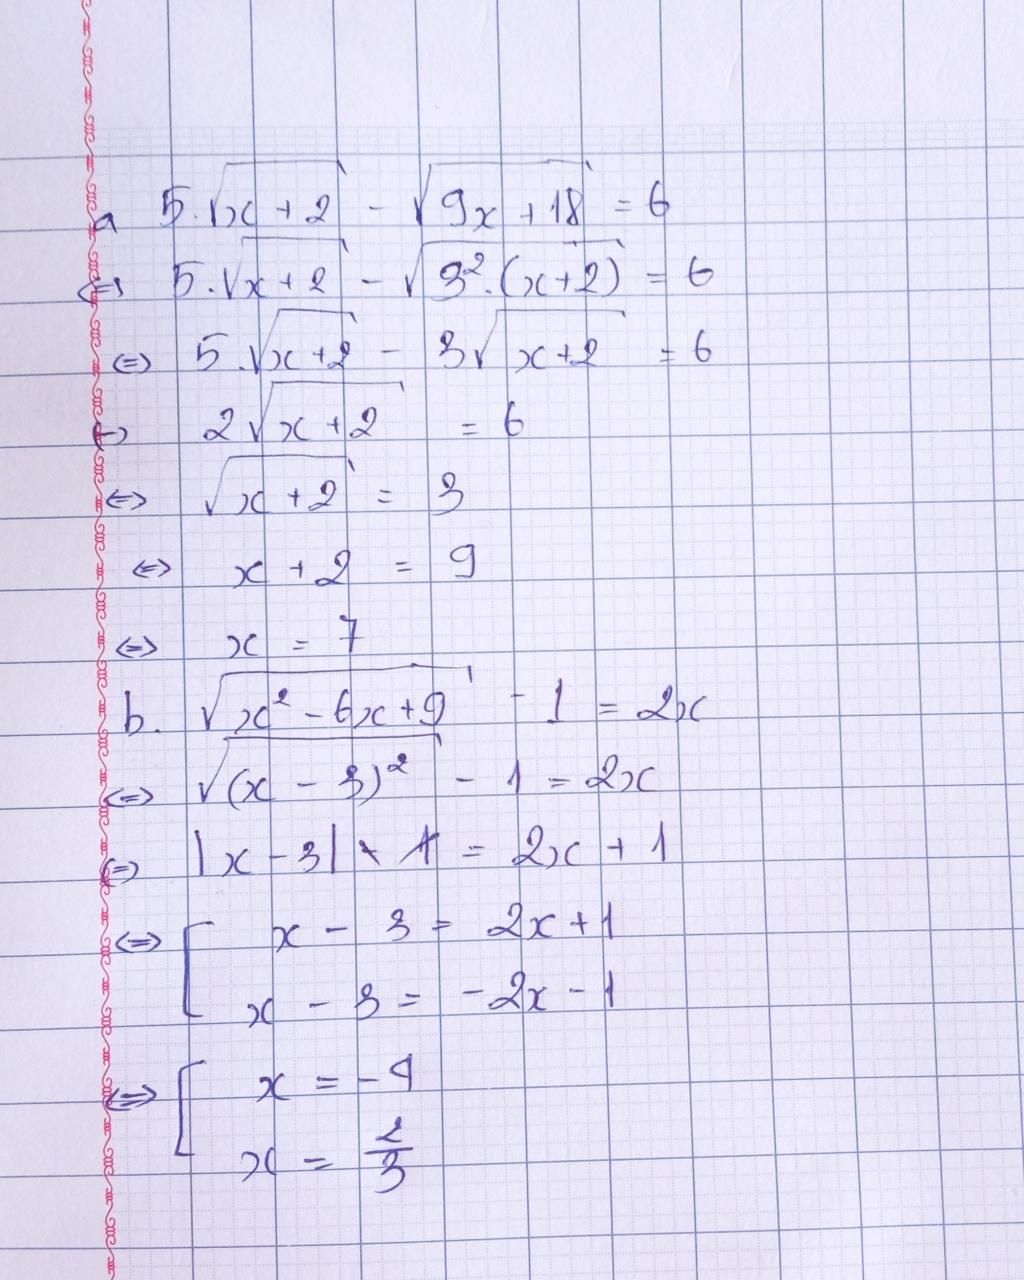 a 5.√(x+2) - √(9x+18) = 6
<=> 5.√(x+2) - √(3².(x+2)) = 6
<=> 5.√(x+2) - 3√(x+2) = 6
<=> 2√(x+2) = 6
<=> √(x+2) = 3
<=> x+2 = 9
<=> x = 7
b. √(x²-6x+9) - 1 = 2x
<=> √((x-3)²) - 1 = 2x
<=> |x-3| = 2x+1
<=> [ x-3 = 2x+1
x-3 = -2x-1
<=> [ x = -4
x = 2/3